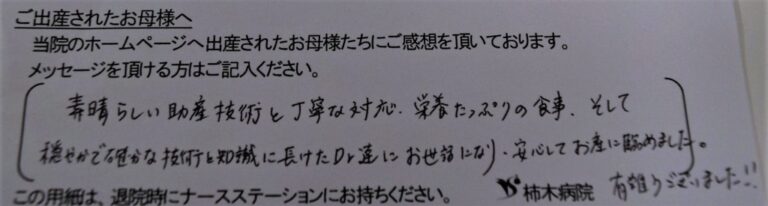 ご出産されたお母様へ
当院のホームページへ出産されたお母様たちにご感想を頂いております。
メッセージを頂ける方はご記入ください。
素晴らしい助産技術と丁寧な対応、栄養たっぷりの食事、そして
穏やかで確かな技術と知識に長けたDr達にお世話になり、安心してお産に臨めました。
有難うございました!!
この用紙は、退院時にナースステーションにお持ちください。
柿木病院